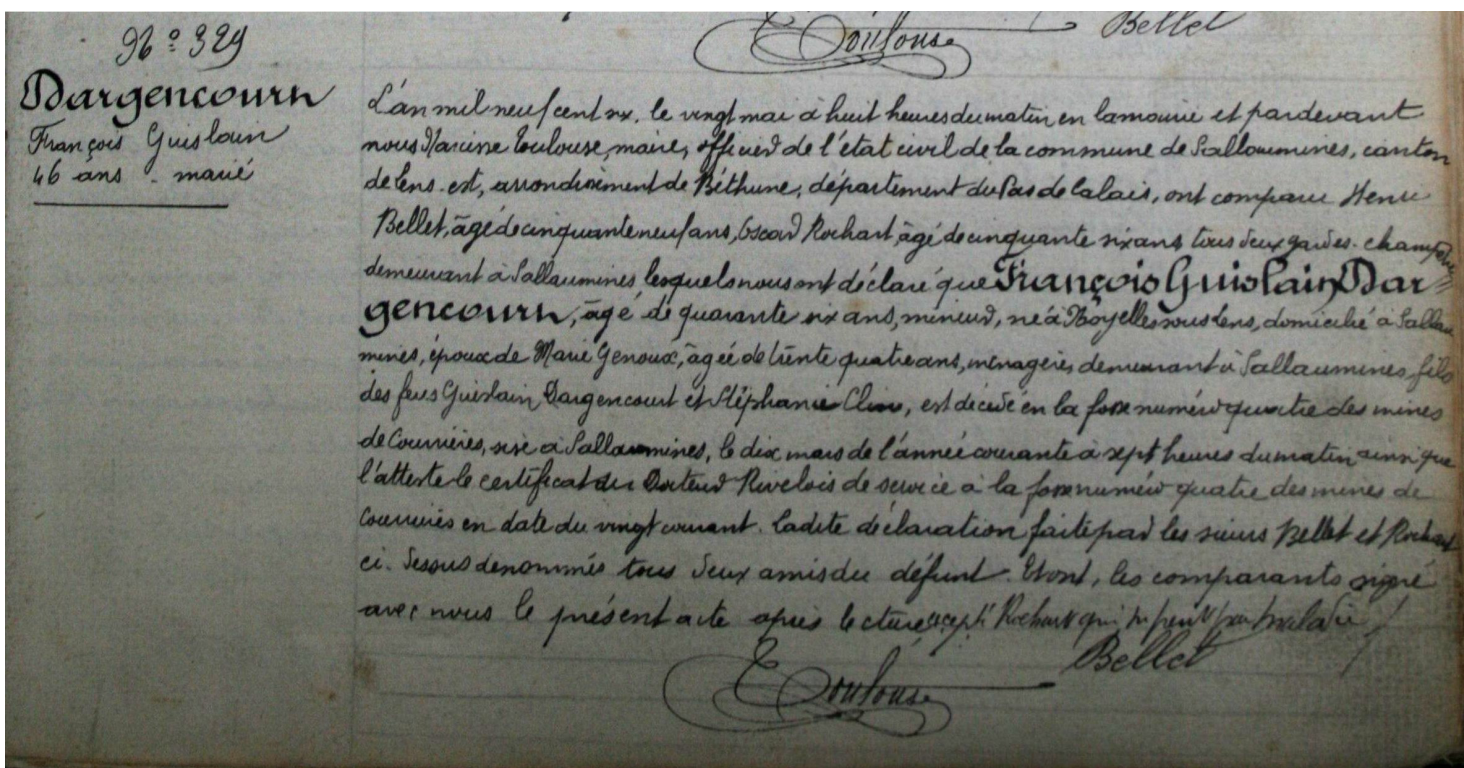 Toulouse Bellet
Nº 329
Dargencourt
François Guislain
46 ans - marié
L'an mil neuf cent six, le vingt mai à huit heures du matin en la mairie et pardevant
nous Narcisse Toulouse, maire, officier de l'état civil de la commune de Sallaumines, canton
de Lens-est, arrondissement de Béthune, département du Pas de Calais, ont comparu Henri
Bellet, âgé de cinquante neuf ans, Oscar Rochart, âgé de cinquante six ans tous deux gardes-champêtres
demeurant à Sallaumines, lesquels nous ont déclaré que François Guislain Dar=
gencourt, âgé de quarante six ans, mineur, né à Noyelles sous Lens, domicilié à Sallau
mines, époux de Marie Genoux, âgée de trente quatre ans, ménagère, demeurant à Sallaumines, fils
des feus Guislain Dargencourt et Stéphanie, est décédé en la fosse numéro quatre des mines
de Courrières, sise à Sallaumines, le dix mars de l'année courante à sept heures du matin ainsi que
l'atteste le certificat du Docteur Rivelois de service à la fosse numéro quatre des mines de
Courrières en date du vingt courant. Ladite déclaration faite par les sieurs Bellet et Rochart
ci-dessus dénommés tous deux amis du défunt. Et ont, les comparants signé
avec nous le présent acte après lecture excepté Rochart qui ne peut par maladie
Toulouse Bellet